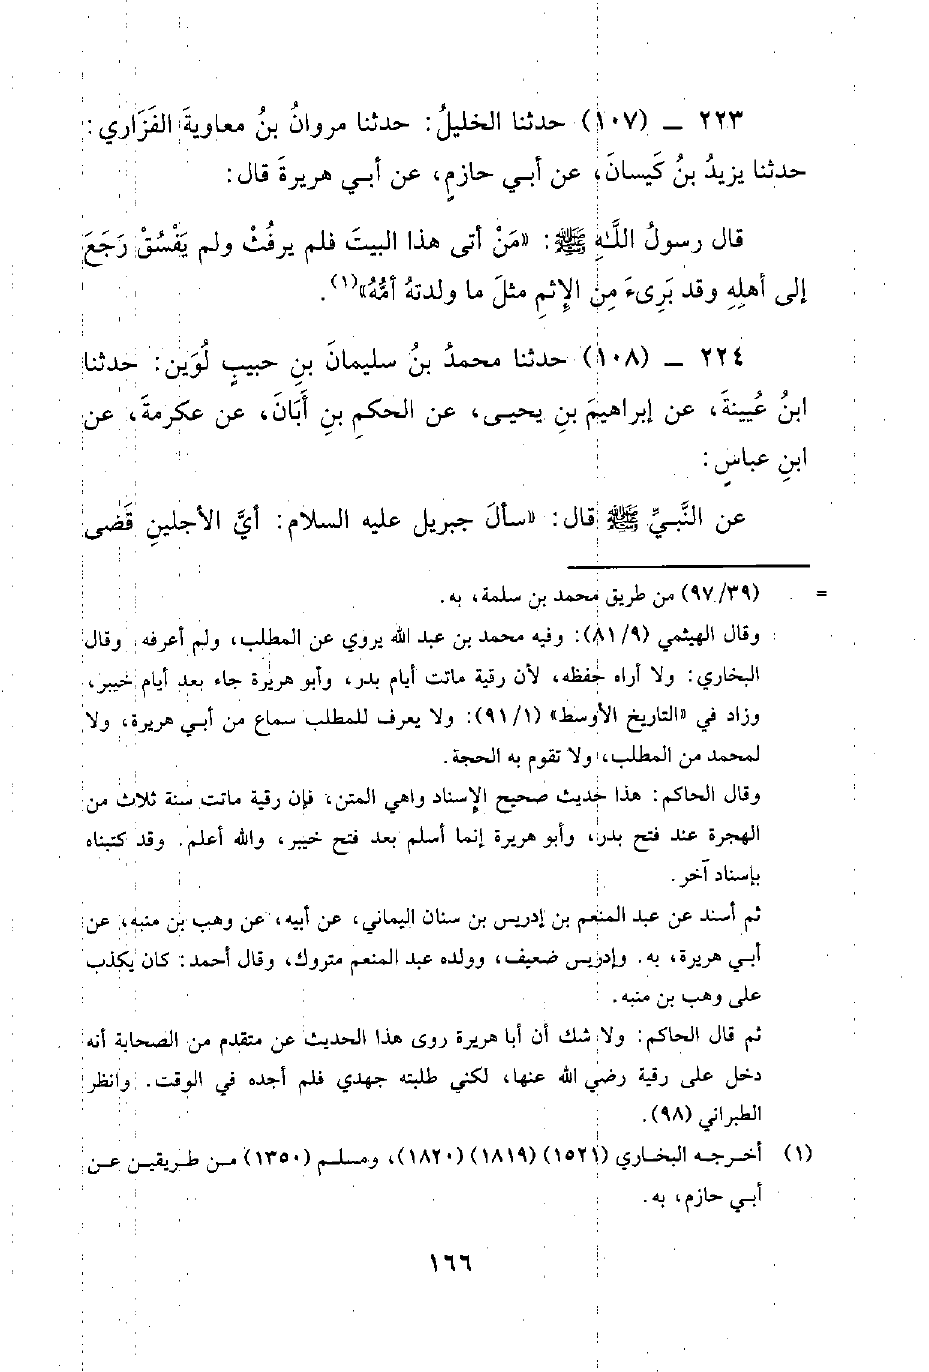 ٢٢٣ ــ (١٠٧) حدثنا الخليلُ: حدثنا مروانُ بنُ معاويةَ الفَزَاري:
حدثنا يزيدُ بنُ كَيسانَ، عن أبي حازمٍ، عن أبي هريرةَ قال:
قال رسولُ اللَّهِ ﷺ: «مَنْ أتى هذا البيتَ فلم يرفُثْ ولم يَفْسُقْ رَجَعَ
إلى أهلِهِ وقد بَرِىءَ مِنِ الإِثمِ مثلَ ما ولدتهُ أمُّهُ»(١).
٢٢٤ ــ (١٠٨) حدثنا محمدُ بنُ سليمانَ بنِ حبيبٍ لُوَين: حدثنا
ابنُ عُيينةَ، عن إبراهيمَ بنِ يحيى، عن الحكمِ بنِ أَبَانَ، عن عكرمةَ، عن
ابنِ عباسٍ:
عن النَّبيِّ ﷺ قال: «سألَ جبريل عليه السلام: أيَّ الأجلينِ قَضى
= (٩٧/٣٩) من طريق محمد بن سلمة، به.
وقال الهيثمي (٨١/٩): وفيه محمد بن عبد الله يروي عن المطلب، ولم أعرفه. وقال
البخاري: ولا أراه حفظه، لأن رقية ماتت أيام بدر، وأبو هريرة جاء بعد أيام خيبر،
وزاد في «التاريخ الأوسط» (٩١/١): ولا يعرف للمطلب سماع من أبي هريرة، ولا
لمحمد من المطلب، ولا تقوم به الحجة.
وقال الحاكم: هذا حديث صحيح الإسناد واهي المتن، فإن رقية ماتت سنة ثلاث من
الهجرة عند فتح بدر، وأبو هريرة إنما أسلم بعد فتح خيبر، والله أعلم. وقد كتبناه
بإسناد آخر.
ثم أسند عن عبد المنعم بن إدريس بن سنان اليماني، عن أبيه، عن وهب بن منبه، عن
أبي هريرة، به. وإدريس ضعيف، وولده عبد المنعم متروك، وقال أحمد: كان يكذب
على وهب بن منبه.
ثم قال الحاكم: ولا شك أن أبا هريرة روى هذا الحديث عن متقدم من الصحابة أنه
دخل على رقية رضي الله عنها، لكني طلبته جهدي فلم أجده في الوقت. وانظر
الطبراني (٩٨).
(١) أخرجه البخاري (١٥٢١) (١٨١٩) (١٨٢٠)، ومسلم (١٣٥٠) من طريقين عن
أبي حازم، به.
١٦٦